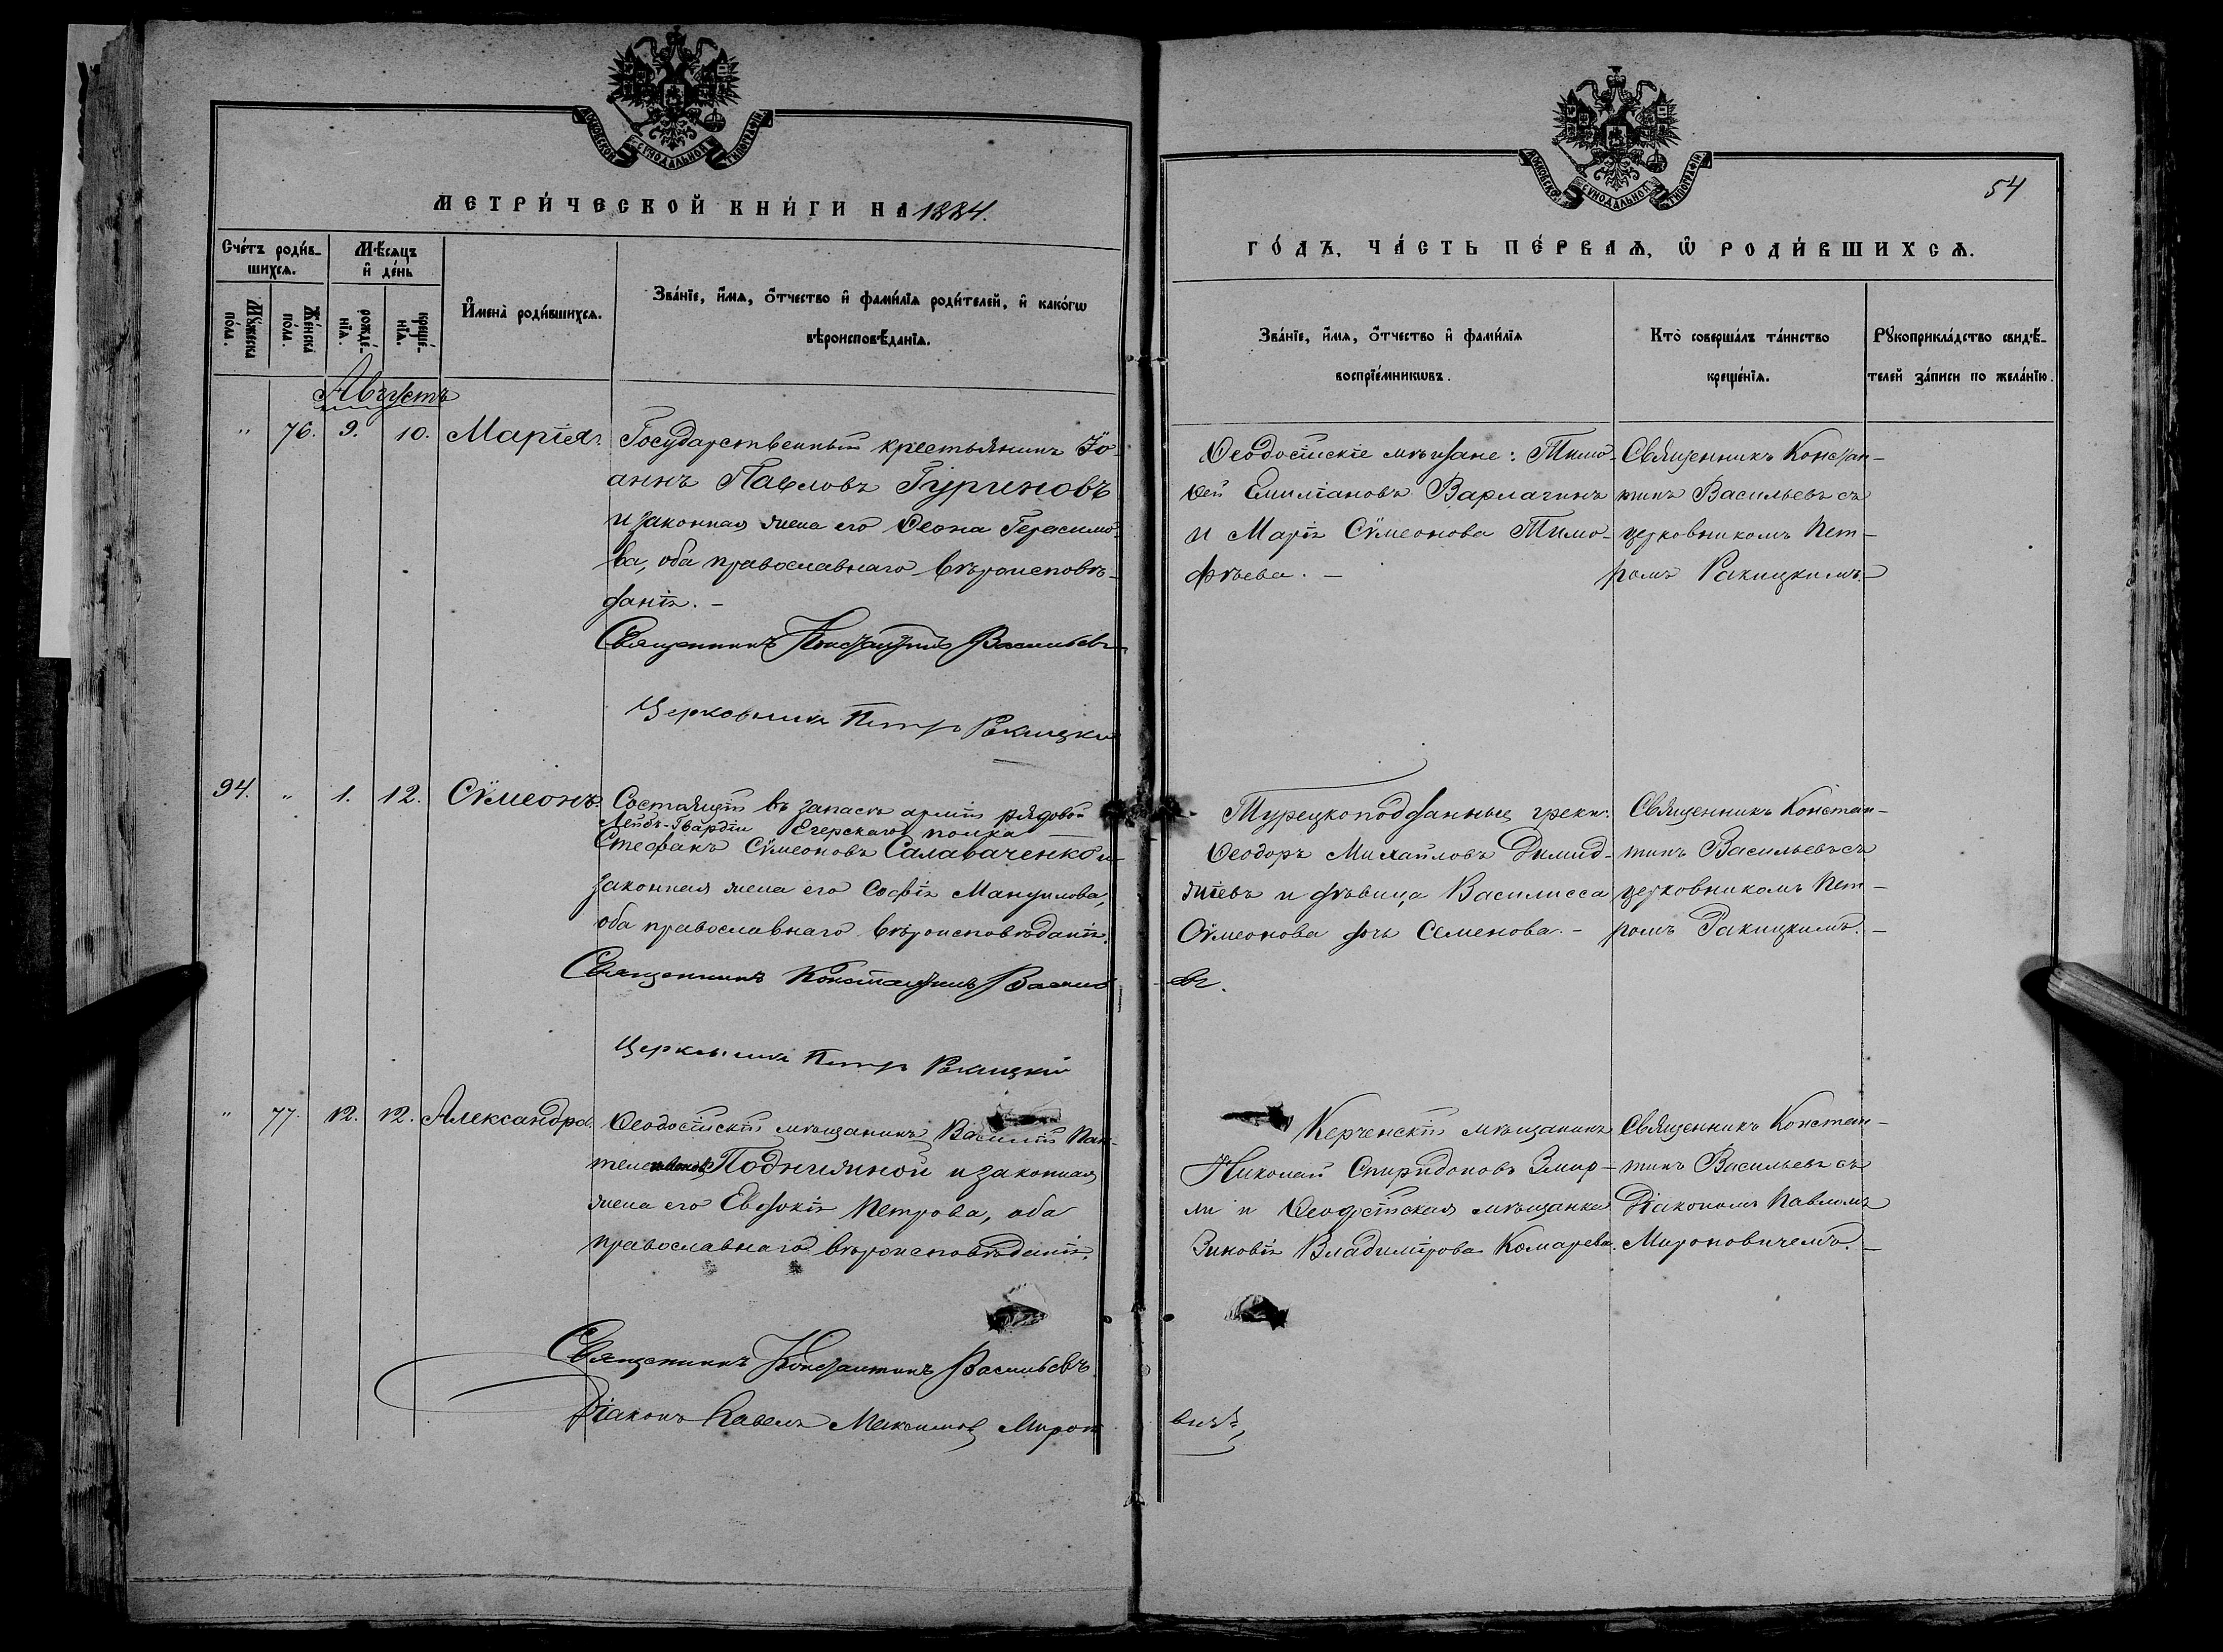 МОСКОВСКОЙ СѴНОДАЛЬНОЙ ТИПОГРАФІИ
МЕТРИ́ЧЕСКОЙ КНИ́ГИ НА 1884.
Сче́тъ роди́в-
шихся.
Мѣ́сяцъ
и҆ де́нь
Мꙋ́жеска
по́ла.
Же́нска
по́ла.
рожде́-
нїѧ.
креще́-
нїѧ.
И҆мена̀ роди́вшихсѧ.
Зва́нїе, и҆́мѧ, ѻ҆́тчество и҆ фами́лїѧ роди́телей, и҆ како́гѡ
вѣроисповѣ́данїѧ.
Августъ
" 76. 9. 10. Марія.
Государственный крестьянинъ Іо-
аннъ Павловъ Гуриновъ
и законная жена его Ѳеона Герасимо-
ва, оба православнаго вѣроисповѣ-
данія. -
Священникъ Константинъ Васильевъ
Церковникъ Петръ Ракицкій
94. " 1. 12. Сѵмеонъ.
Состоящій въ запасѣ арміи рядовой
Лейбъ-Гвардіи Егерскаго полка
Стефанъ Сѵмеоновъ Салаваченко и
законная жена его Софія Мануилова,
оба православнаго вѣроисповѣданія.
Священникъ Константинъ Василь
Церковникъ Петръ Ракицкій
" 77. 12. 12. Александра.
Ѳеодосійскій мѣщанинъ Василій Пан-
телеимоновъ и законная
жена его Евдокія Петрова, оба
православнаго вѣроисповѣданія.
Священникъ Константинъ Васильевъ.
Діаконъ Павелъ Максимовъ Мироно
МОСКОВСКОЙ СѴНОДАЛЬНОЙ ТИПОГРАФІИ
54
ГО́ДЪ, ЧА́СТЬ ПЕ́РВАѦ, Ѡ҆ РОДИ́ВШИХСѦ.
Зва́нїе, и҆́мѧ, ѻ҆́тчество и҆ фами́лїѧ
воспрїе́мникѡвъ.
Кто̀ соверша́лъ та́инство
креще́нїѧ.
Рꙋкоприкла́дство свидѣ́-
телей за́писи по жела́нїю.
Ѳеодосійскіе мѣщане: Тимо-
ѳей Емиліановъ Варлагинъ
и Марія Сѵмеонова Тимо-
фѣева. -
Священникъ Констан-
тинъ Васильевъ съ
церковникомъ Пет-
ромъ Ракицкимъ. -
Турецкоподданные греки:
Ѳеодоръ Михайловъ Димид-
жіевъ и дѣвица Василисса
Сѵмеонова дочь Семенова. -
евъ.
Священникъ Констан-
тинъ Васильевъ съ
церковникомъ Пет-
ромъ Ракицкимъ. -
Керченскій мѣщанинъ
Николай Спиридоновъ Змир-
ли и Ѳеодосійская мѣщанка
Зиновія Владимірова Комарева.
Священникъ Констан-
тинъ Васильевъ съ
Діакономъ Павломъ
Мироновичемъ. -
вичъ,